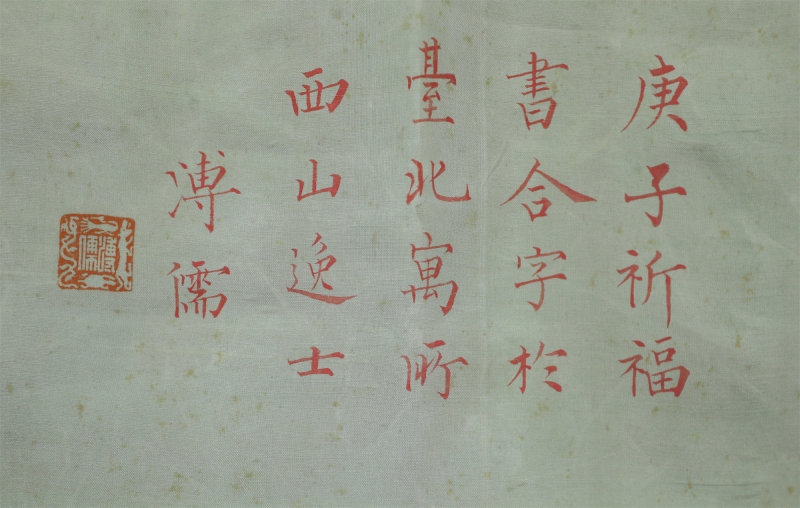 庚子祈福
書合字於
臺北寓所
西山逸士
溥儒